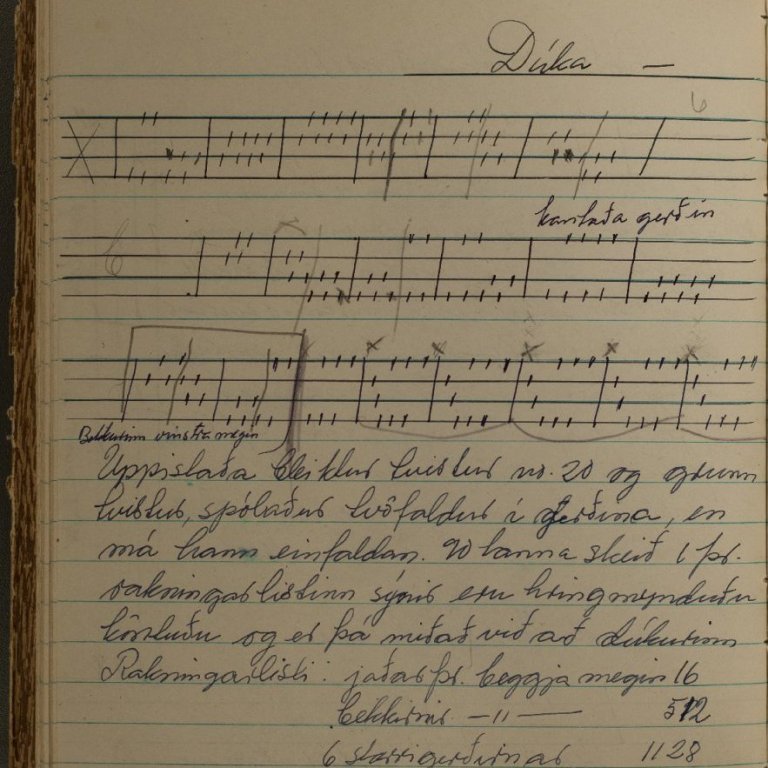 Dúka —
6
kantaða gerðin
Bekkurinn vinstra megin
Uppistaða bleiktur tvistur no. 20 og grunn
tvistur, spólaður tvöfaldur í gerðina, en
má hann einfaldan. 90 tanna skeið 1 þr.
rakningarlistinn sýnir eru hringmynduðu
köntuðu og er þá miðað við að dúkurinn
Rakningarlisti: jaðar þr. beggja megin 16
bekkirnir —"— 512
6 stærri gerðirnar 1128